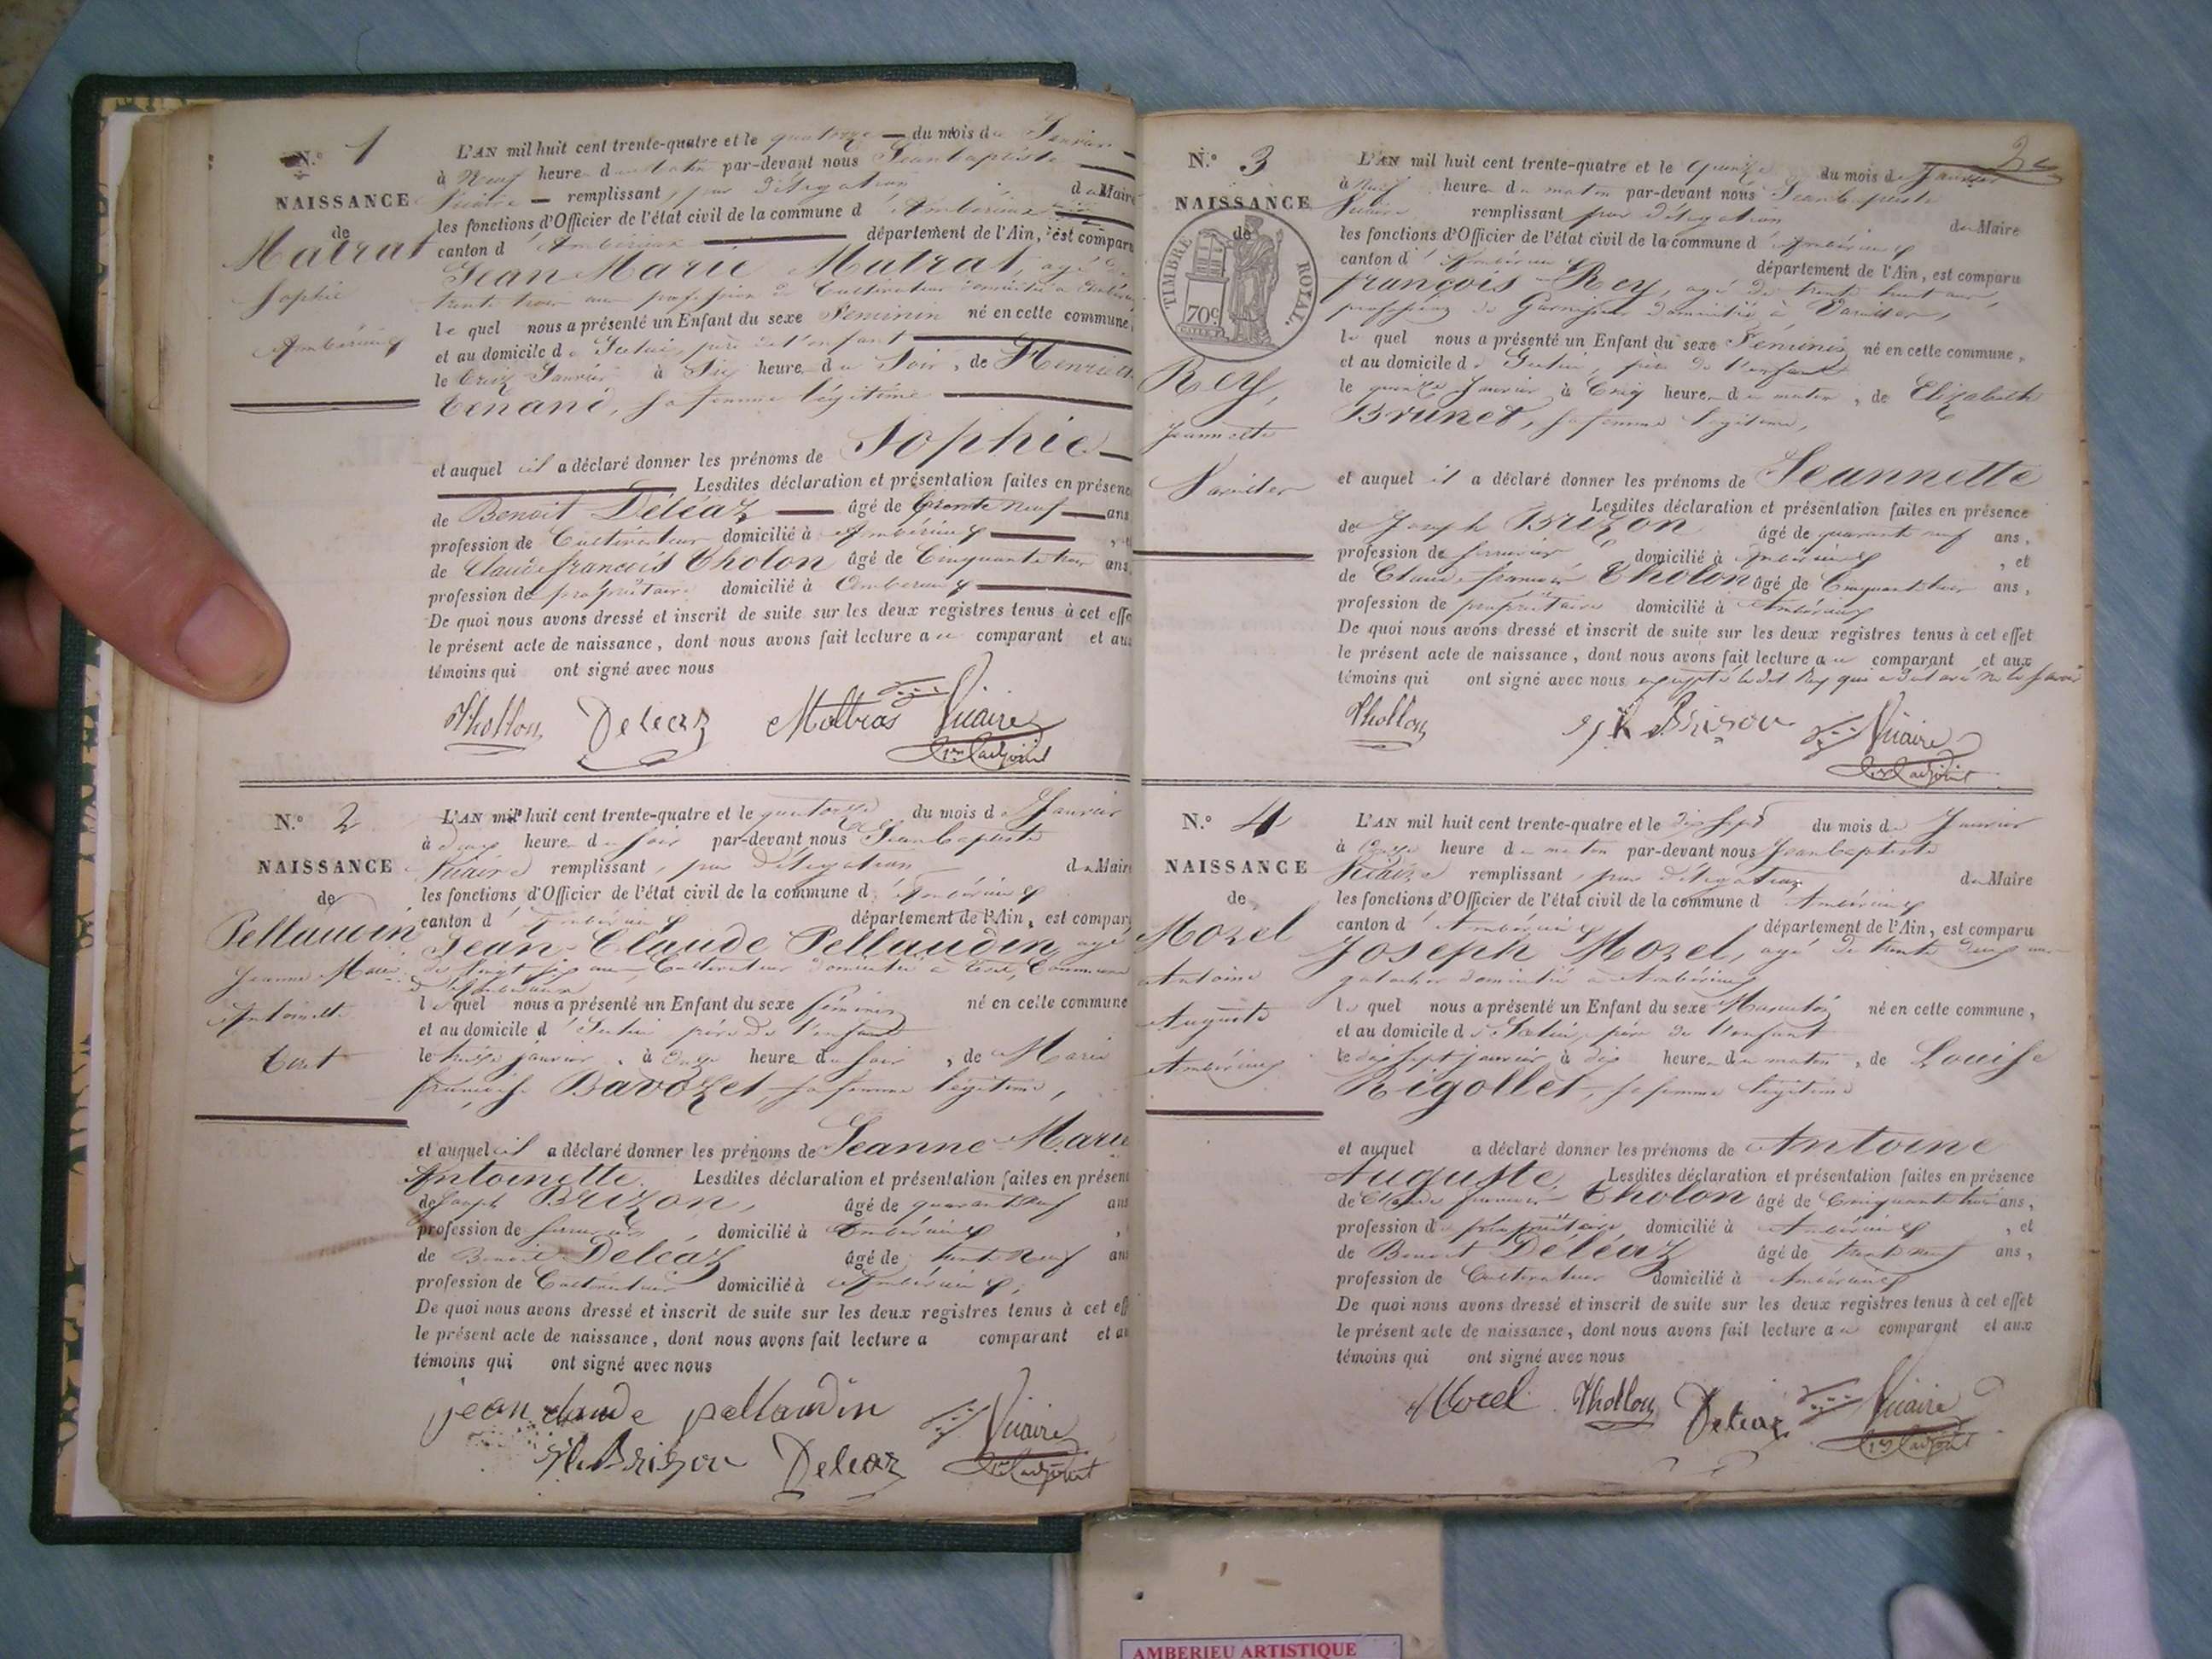 N.° 1
NAISSANCE
de
Matrat
Sophie
Ambérieux
L'AN mil huit cent trente-quatre et le quatorze du mois de Janvier
à Neuf heure du matin par-devant nous Jeanbaptiste
Vicaire remplissant, par délégation du Maire
les fonctions d'Officier de l'état civil de la commune d'Ambérieux
canton d'Ambérieux département de l'Ain, est comparu
Jean Marie Matrat, agé de
trente trois ans profession de Cultivateur domicilié à
le quel nous a présenté un Enfant du sexe Féminin né en cette commune,
et au domicile de père de l'enfant
le treize Janvier à Six heure du Soir, de Henriette
Tenand, sa femme légitime
et auquel il a déclaré donner les prénoms de Sophie
Lesdites déclaration et présentation faites en présence
de Benoit Déléaz âgé de trente neuf ans
profession de Cultivateur domicilié à Ambérieux
de Claude françois Tholon âgé de Cinquante trois ans
profession de propriétaire domicilié à Ambérieux
De quoi nous avons dressé et inscrit de suite sur les deux registres tenus à cet effe
le présent acte de naissance, dont nous avons fait lecture au comparant et aux
témoins qui ont signé avec nous
Thollon Deleaz Mattras Vicaire
1er adjoint
N.° 2
NAISSANCE
de
Pellaudin
Jeanne Marie
Antoinette
L'AN mil huit cent trente-quatre et le quatorze du mois de Janvier
à deux heure du soir par-devant nous Jean baptiste
Vicaire remplissant, par délégation du Maire
les fonctions d'Officier de l'état civil de la commune d'Ambérieux
canton d'Ambérieux département de l'Ain, est comparu
Jean Claude Pellaudin agé
de Vingt six ans Cultivateur domicilié à Commune
d'Ambérieux
le quel nous a présenté un Enfant du sexe féminin né en cette commune
et au domicile d père de l'enfant
le treize janvier, à onze heure du soir, de Marie
françoise Bavozet, sa femme légitime,
et auquel il a déclaré donner les prénoms de Jeanne Marie
Antoinette. Lesdites déclaration et présentation faites en présen
de Joseph Brizon, âgé de quarante neuf ans
profession de serrurier domicilié à Ambérieux
de Benoit Deléaz âgé de trente neuf ans
profession de Cultivateur domicilié à Ambérieux,
De quoi nous avons dressé et inscrit de suite sur les deux registres tenus à cet eff
le présent acte de naissance, dont nous avons fait lecture a comparant et au
témoins qui ont signé avec nous
jean claude pellaudin Vicaire
Brison Deleaz 1er adjoint
2
N.° 3
NAISSANCE
de
TIMBRE ROYAL.
70c
Rey,
Jeannette
Vareilles
L'AN mil huit cent trente-quatre et le quinze du mois de Janvier
à neuf heure du matin par-devant nous Jeanbaptiste
Vicaire remplissant par délégation du Maire
les fonctions d'Officier de l'état civil de la commune d'Ambérieux
canton d'Ambérieux département de l'Ain, est comparu
françois Rey, agé de trente huit ans,
profession de domicilié à Vareilles,
le quel nous a présenté un Enfant du sexe Féminin né en cette commune,
et au domicile de père de l'enfant
le quinze Janvier à Cinq heure du matin, de Elizabeth
Brunet, sa femme légitime,
et auquel il a déclaré donner les prénoms de Jeannette
Lesdites déclaration et présentation faites en présence
de Joseph Brizon âgé de quarante neuf ans,
profession de serrurier domicilié à Ambérieux, et
de Claude françois Tholon âgé de Cinquante trois ans,
profession de propriétaire domicilié à Ambérieux
De quoi nous avons dressé et inscrit de suite sur les deux registres tenus à cet effet
le présent acte de naissance, dont nous avons fait lecture au comparant et aux
témoins qui ont signé avec nous excepté ledit Rey qui a déclaré ne le savoir
Thollon Brison Vicaire
1er adjoint
N.° 4
NAISSANCE
de
Morel
Antoine
Auguste
Ambérieux
L'AN mil huit cent trente-quatre et le dix sept du mois de Janvier
à onze heure du matin par-devant nous Jeanbaptiste
Vicaire remplissant, par délégation du Maire
les fonctions d'Officier de l'état civil de la commune d'Ambérieux
canton d'Ambérieux département de l'Ain, est comparu
Joseph Morel, agé de trente deux ans
domicilié à Ambérieux
le quel nous a présenté un Enfant du sexe Masculin né en cette commune,
et au domicile de père de l'enfant
le dix sept janvier, à dix heure du matin, de Louise
Rigollet, sa femme légitime
et auquel a déclaré donner les prénoms de Antoine
Auguste, Lesdites déclaration et présentation faites en présence
de Claude françois Tholon âgé de Cinquante trois ans,
profession de propriétaire domicilié à Ambérieux, et
de Benoit Déléaz âgé de trente neuf ans,
profession de Cultivateur domicilié à Ambérieux
De quoi nous avons dressé et inscrit de suite sur les deux registres tenus à cet effet
le présent acte de naissance, dont nous avons fait lecture au comparant et aux
témoins qui ont signé avec nous
Morel Thollon Deleaz Vicaire
1er adjoint
AMBERIEU ARTISTIQUE